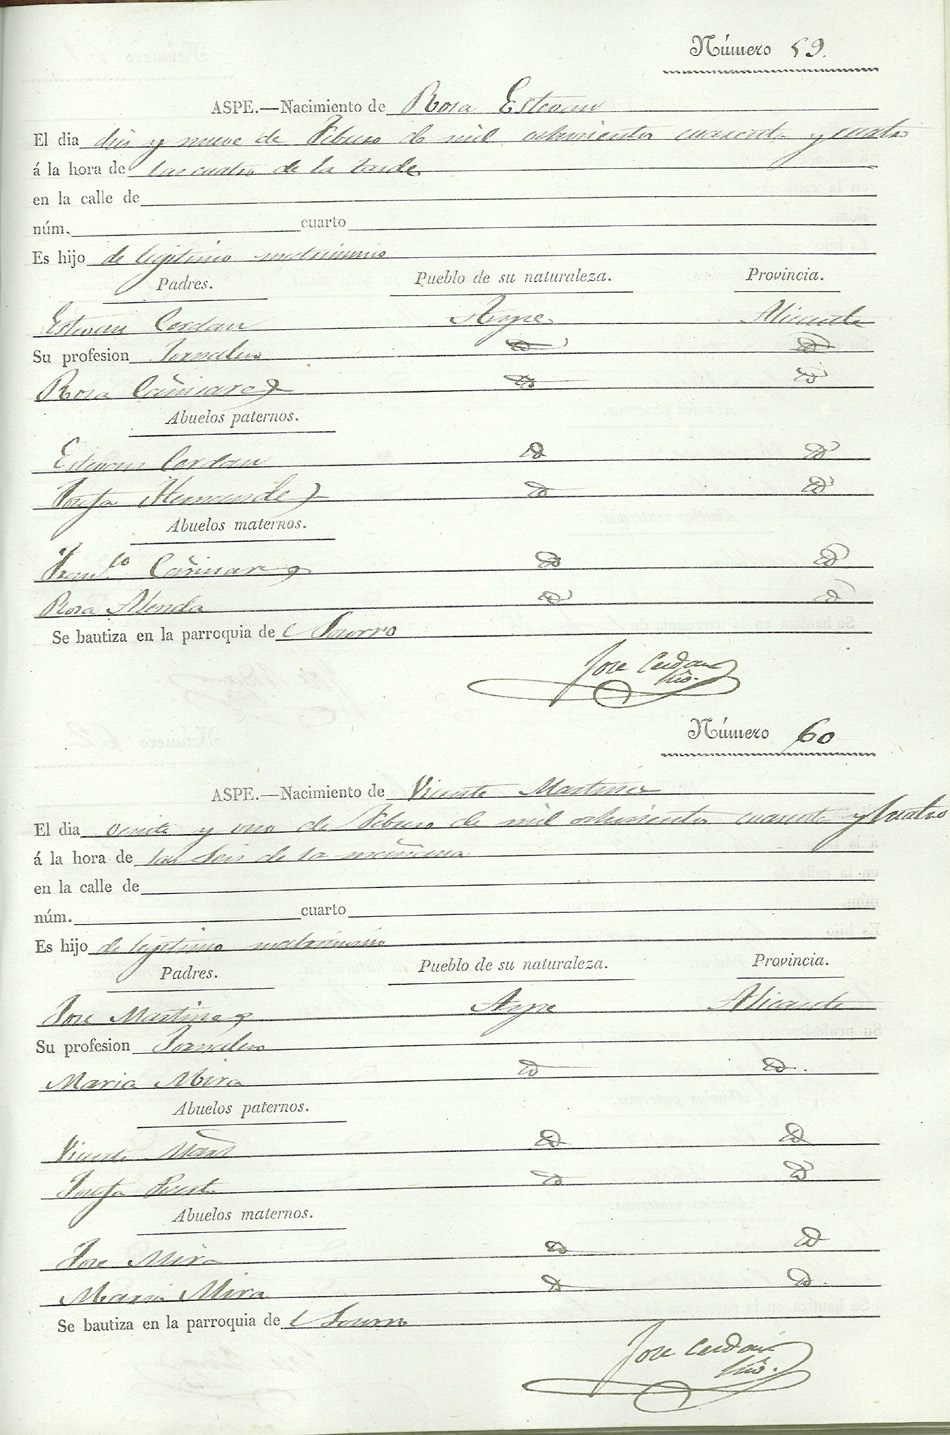 Número 59.
ASPE.—Nacimiento de Rosa Estevan
El dia diez y nueve de Febrero de mil ochocientos cuarenta y cuatro
á la hora de las cuatro de la tarde
en la calle de
núm. cuarto
Es hijo de legitimo matrimonio
Padres. Pueblo de su naturaleza. Provincia.
Estevan Cerdan Aspe Alicante
Su profesion Jornalero id id
Rosa Cañizares id id
Abuelos paternos.
Estevan Cerdan id id
Josefa Hernandez id id
Abuelos maternos.
Fran.co Cañizares id id
Rosa Alenda id id
Se bautiza en la parroquia de Socorro
Jose Cerdan
Número 60
ASPE.—Nacimiento de Vicente Martinez
El dia veinte y uno de Febrero de mil ochocientos cuarenta y cuatro
á la hora de las seis de la mañana
en la calle de
núm. cuarto
Es hijo de legitimo matrimonio
Padres. Pueblo de su naturaleza. Provincia.
Jose Martinez Aspe Alicante
Su profesion Jornalero
Maria Mira id id.
Abuelos paternos.
Vicente id id
Josefa id id
Abuelos maternos.
Jose Mira id id
Maria Mira id id.
Se bautiza en la parroquia de Socorro
Jose Cerdan